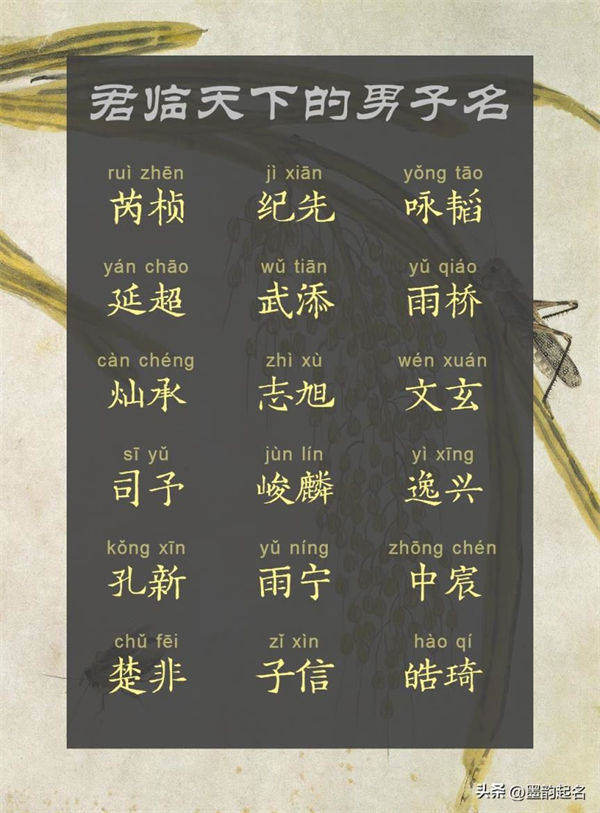 君临天下的男子名
ruì zhēn jì xiān yǒng tāo
芮桢 纪先 咏韬
yán chāo wǔ tiān yǔ qiáo
延超 武添 雨桥
càn chéng zhì xù wén xuán
灿承 志旭 文玄
sī yǔ jùn lín yì xīng
司予 峻麟 逸兴
kǒng xīn yǔ níng zhōng chén
孔新 雨宁 中宸
chǔ fēi zǐ xìn hào qí
楚非 子信 皓琦
头条 @墨韵起名